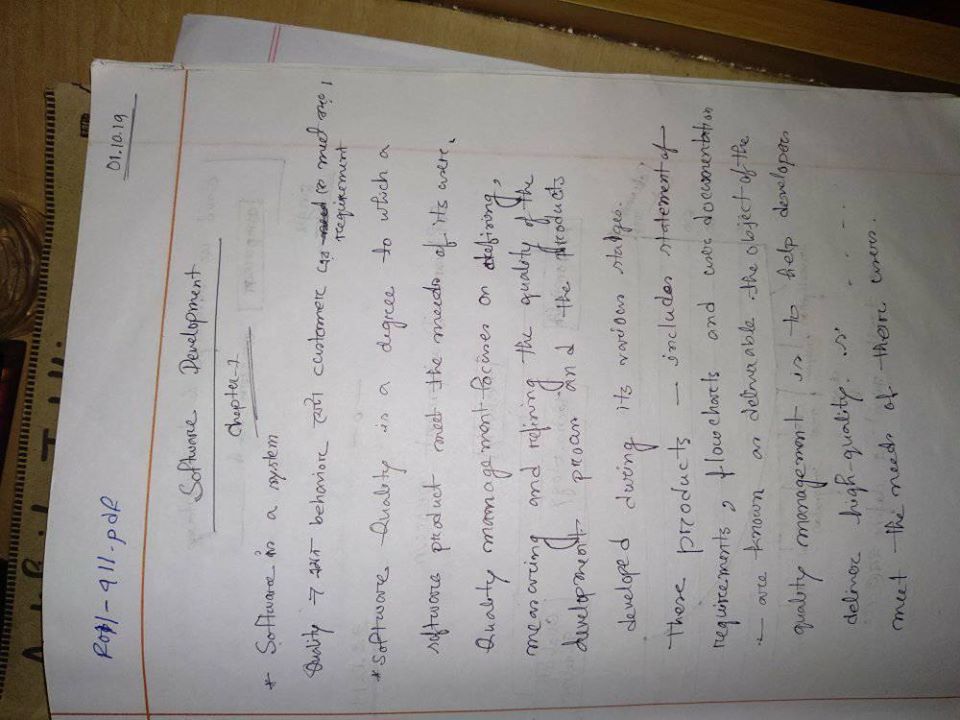 01.10.19
Roll-911.pdf
Software Development
Chapter-7
* Software is a system
Quality behaviore customere meet
requirement
* Software Quality is a degree to which a
software product meet the needs of its usere.
Quality management focuses on defining,
measuring and refining the quality of the
development proan and the products
developed during its various stages.
these products — includes statement of
requirements, flowcharts and user documentation
— are known as deliverable the object of the
quality management is to help developers
deliver high-quality is - - - -
meet the needs of there users.